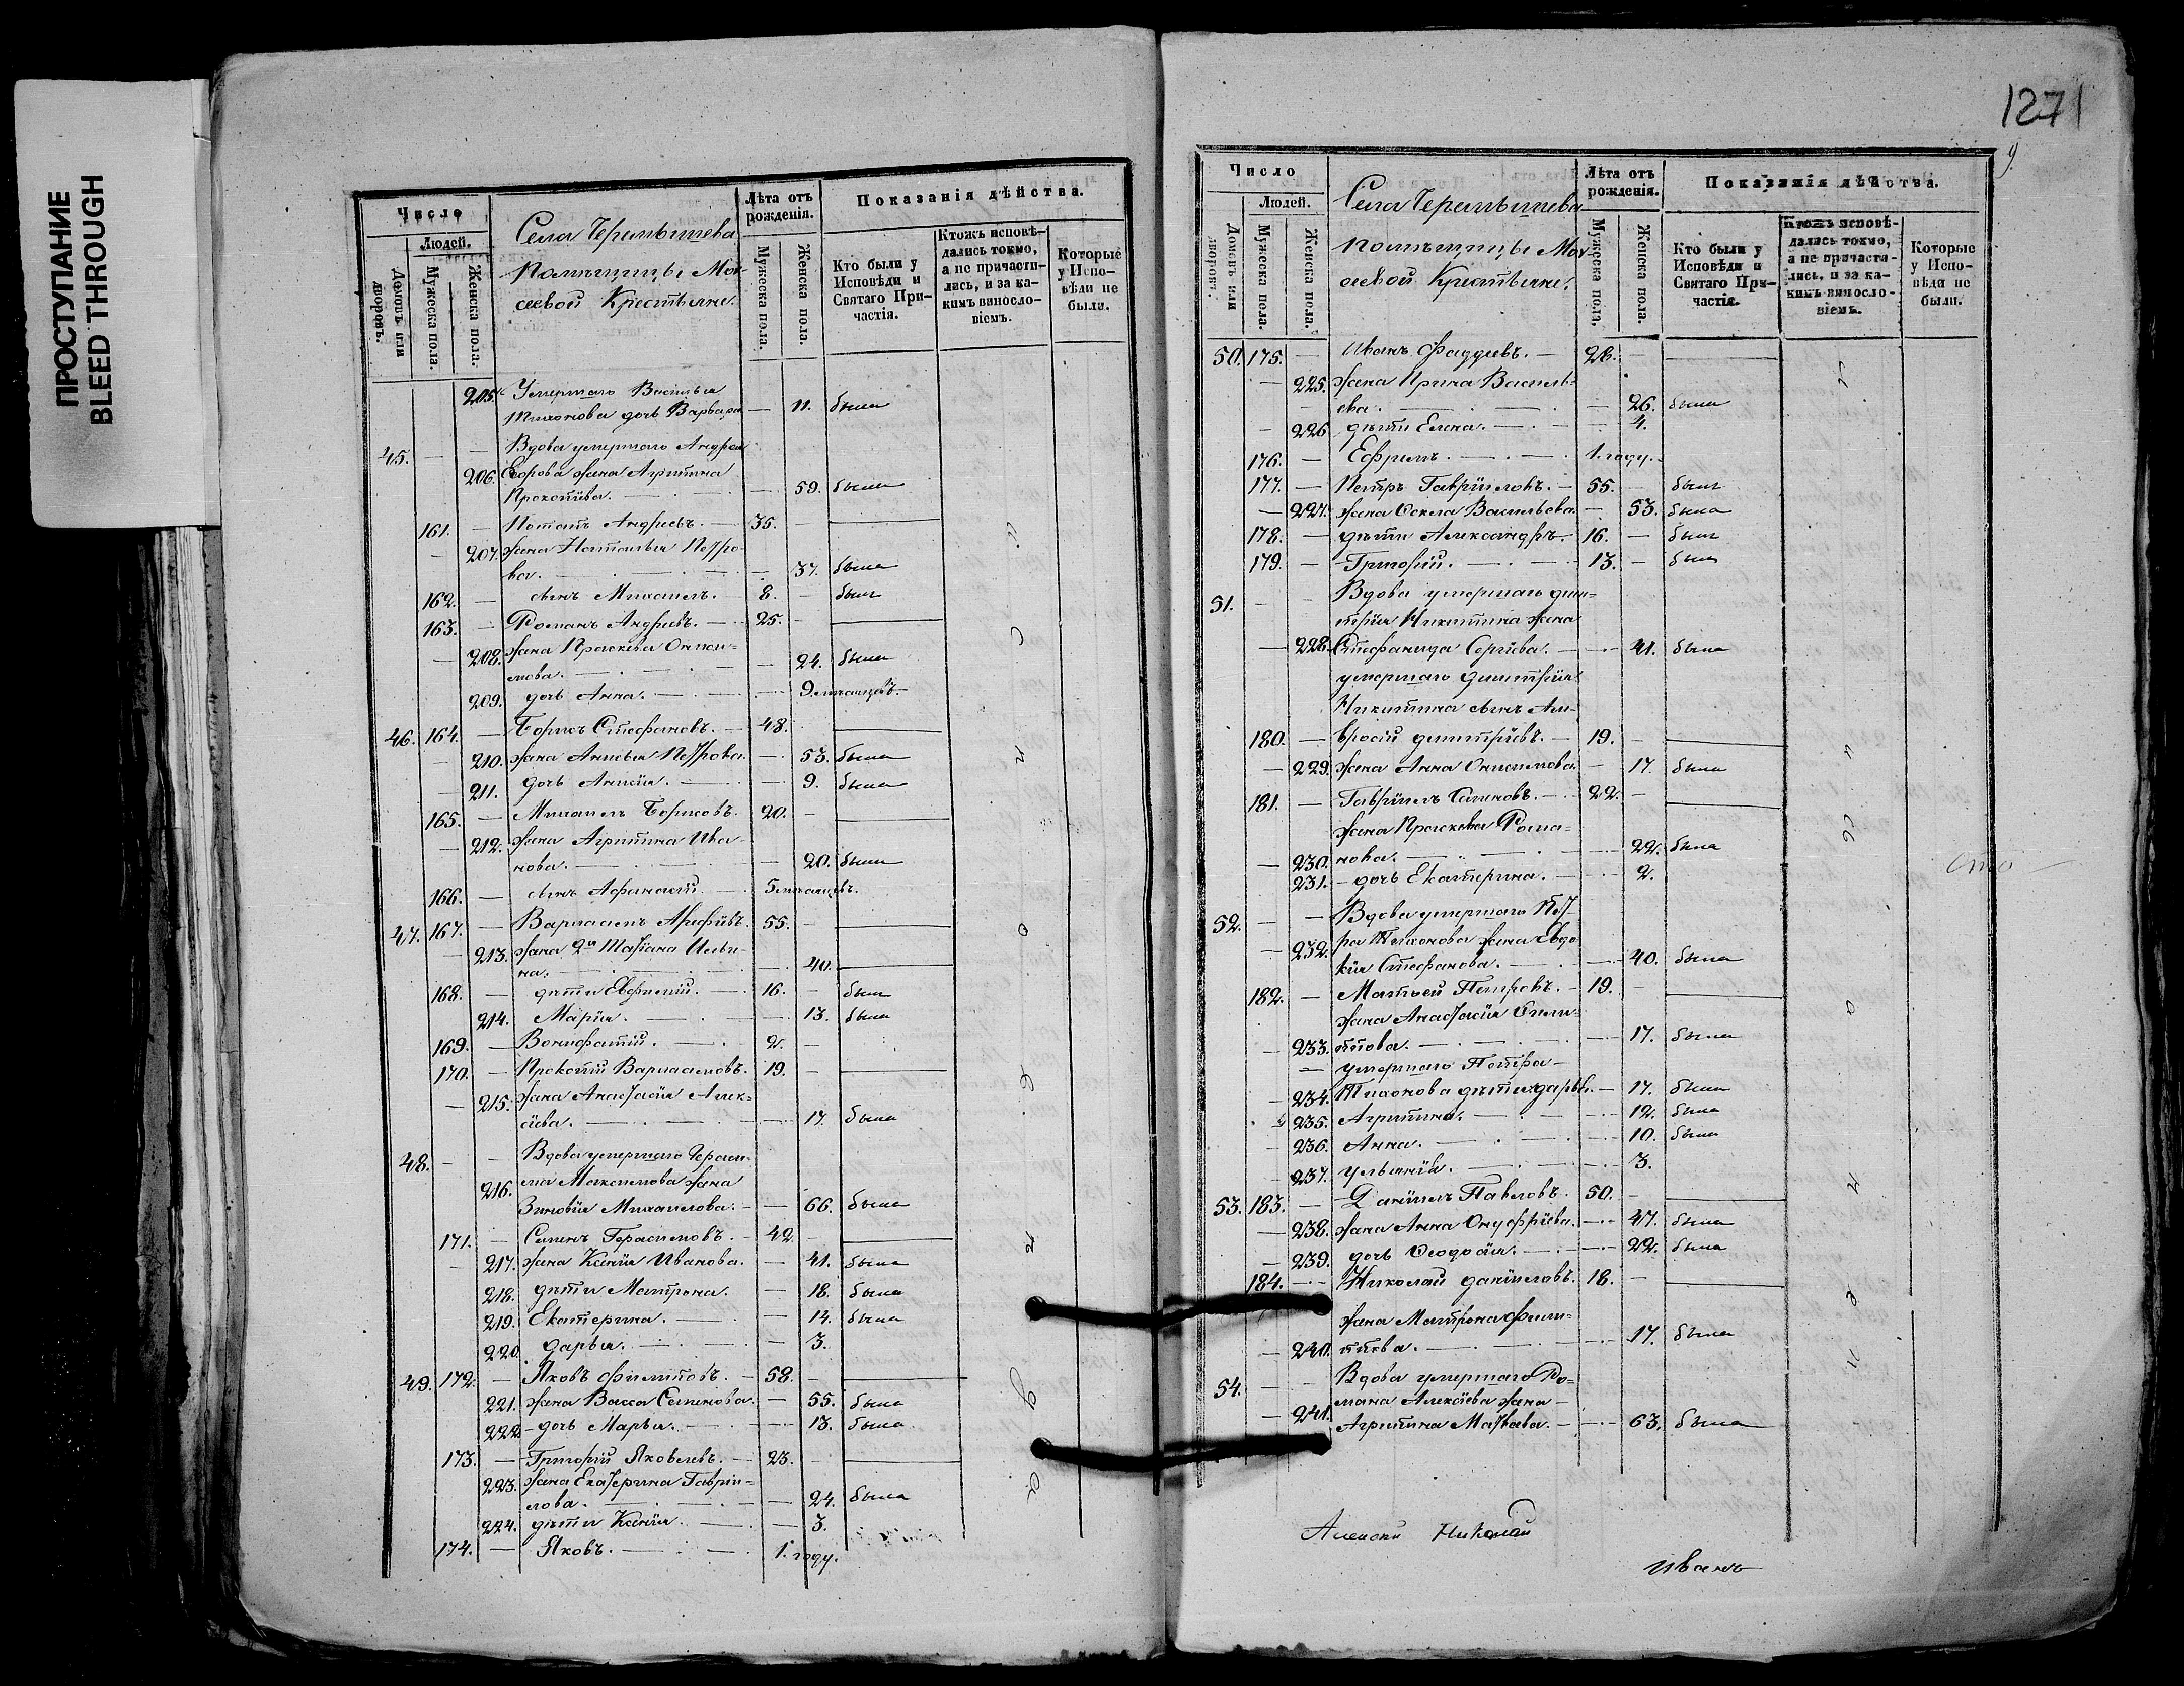 ПРОСТУПАНИЕ
BLEED THROUGH
Число
Людей.
Домовъ или дворовъ.
Мужеска пола.
Женска пола.
Села Черемышева
помѣщицы Мок-
сеевой Крестьяне.
Лѣта отъ рожденія.
Мужеска пола.
Женска пола.
Показанія дѣйства.
Кто были у Исповѣди и Святаго Причастія.
Ктожъ исповѣ-
дались токмо,
а не причасти-
лись, и за ка-
кимъ винословіемъ.
Которые
у Испо-
вѣди не
были.
205. Умершаго Василья
Тихонова дочь Варвара — 11. была
45. — — Вдова умершаго Андрея
206. Егорова жена Агрипина
Прокопіева. — 59. была
161. — Потапъ Андреевъ. — 35.
— 207. жена Наталья Петро-
ва. — 37. была
162. — сынъ Михаилъ. — 8. — былъ
163. — Романъ Андреевъ. — 25. —
— 208. жена ПрасковьяОниси-
мова. — 24. была
209. дочь Анна. — 9 мѣсяцовъ
46. 164. — Борисъ Стефановъ. — 48.
— 210. жена Анисья Петрова. — 53. была
— 211. дочь Анисія. — 9. была
165. — Михаилъ Борисовъ. 20. —
— 212. жена Агрипина Ива-
нова. — 20. была
166. — сынъ Афанасій. — 5 мѣсяцовъ.
47. 167. — Варлаамъ Арефіевъ. 55. —
— 213. жена 2я Татіана Ильи-
на. — 40.
168. — дѣти Евфимій. — 16. — былъ
214. Марія. — 13. была
169. — Вонифатій. — 2. —
170. — Прокопій Варлаамовъ. 19. —
— 215. жена Анастасія Алек-
сіева. — 17. была
48. — — Вдова умершаго Гераси-
216. ма Максимова жена
Зиновія Михаилова. — 66. была
171. — Семенъ Герасимовъ. — 42.
— 217. жена Ксенія Иванова. — 41. была
218. дѣти Матрона. — 18. была
219. Екатерина. — 14. была
220. Дарья. — 3.
49. 172. — Яковъ Филиповъ. — 58. —
221. жена Васса Семенова. — 55. была
222. — дочь Марья. — 13. была
173. — Григорій Яковлевъ. — 23.
223. жена Екатерина Гаврии-
лова. — 24. была
224. дѣти Ксенія. — 3.
174. — Яковъ. — 1. году.
1271
Число
Людей.
Домовъ или дворовъ.
Мужеска пола.
Женска пола.
Села Черемышева
помѣщицы Мок-
сеевой Крестьяне.
Лѣта отъ рожденія.
Мужеска пола.
Женска пола.
Показанія дѣйства.
Кто были у Исповѣди и Святаго Причастія.
Ктожъ исповѣ-
дались токмо,
а не причасти-
лись, и за ка-
кимъ винословіемъ.
Которые
у Испо-
вѣди не
были.
50. 175. — Иванъ Фаддеевъ. — 28. —
— 225. жена Ирина Василь-
ева. — 26. была
— 226 дѣти Елена. — 4.
176. — Ефремъ. — 1. году.
177. — Петръ Гавріиловъ. — 55. — былъ
— 227. жена Фекла Васильева. — 53. была
178. — дѣти Александръ. — 16. — былъ
179. — Григорій. — 13. — былъ
51. — — Вдова умершаго Дми-
трія Никитина жена
— 228. Стефанида Сергіева. — 41. была
умершаго Димитрія
Никитина сынъ Ам-
180. — вросій Димитріевъ. — 19. —
— 229. жена Анна Онисимова. — 17. была
181. — Гавріилъ Семеновъ. — 22. —
жена Прасковья Рома-
— 230. нова. — 22. была
231. — дочь Екатерина. — 2.
52. — — Вдова умершаго Пет-
— 232. ра Тихонова жена Евдо-
кія Стефанова. — 40. была
182. — Матѳей Петровъ. — 19. —
жена Анастасія Фили-
— 233. ппова. — 17. была
— умершаго Петра —
— 234. Тихонова дѣти Дарья. — 17. была
235. Агрипина. — 12. была
— 236. Анна. — 10. была
— 237. Ульянія. — 3.
53. 183. — Даніилъ Павловъ. 50. —
— 238. жена Анна Онуфріева. — 47. была
— 239. дочь Ѳеодосія. — 22. была
184. — Николай Даніиловъ. 18. —
жена Матрона Фили-
— 240. ппова. — 17. была
54. — — Вдова умершаго Ро-
мана Алексіева жена —
— 241. Агрипина Матвѣева. — 63. была
Алексѣй Николай
Иванъ